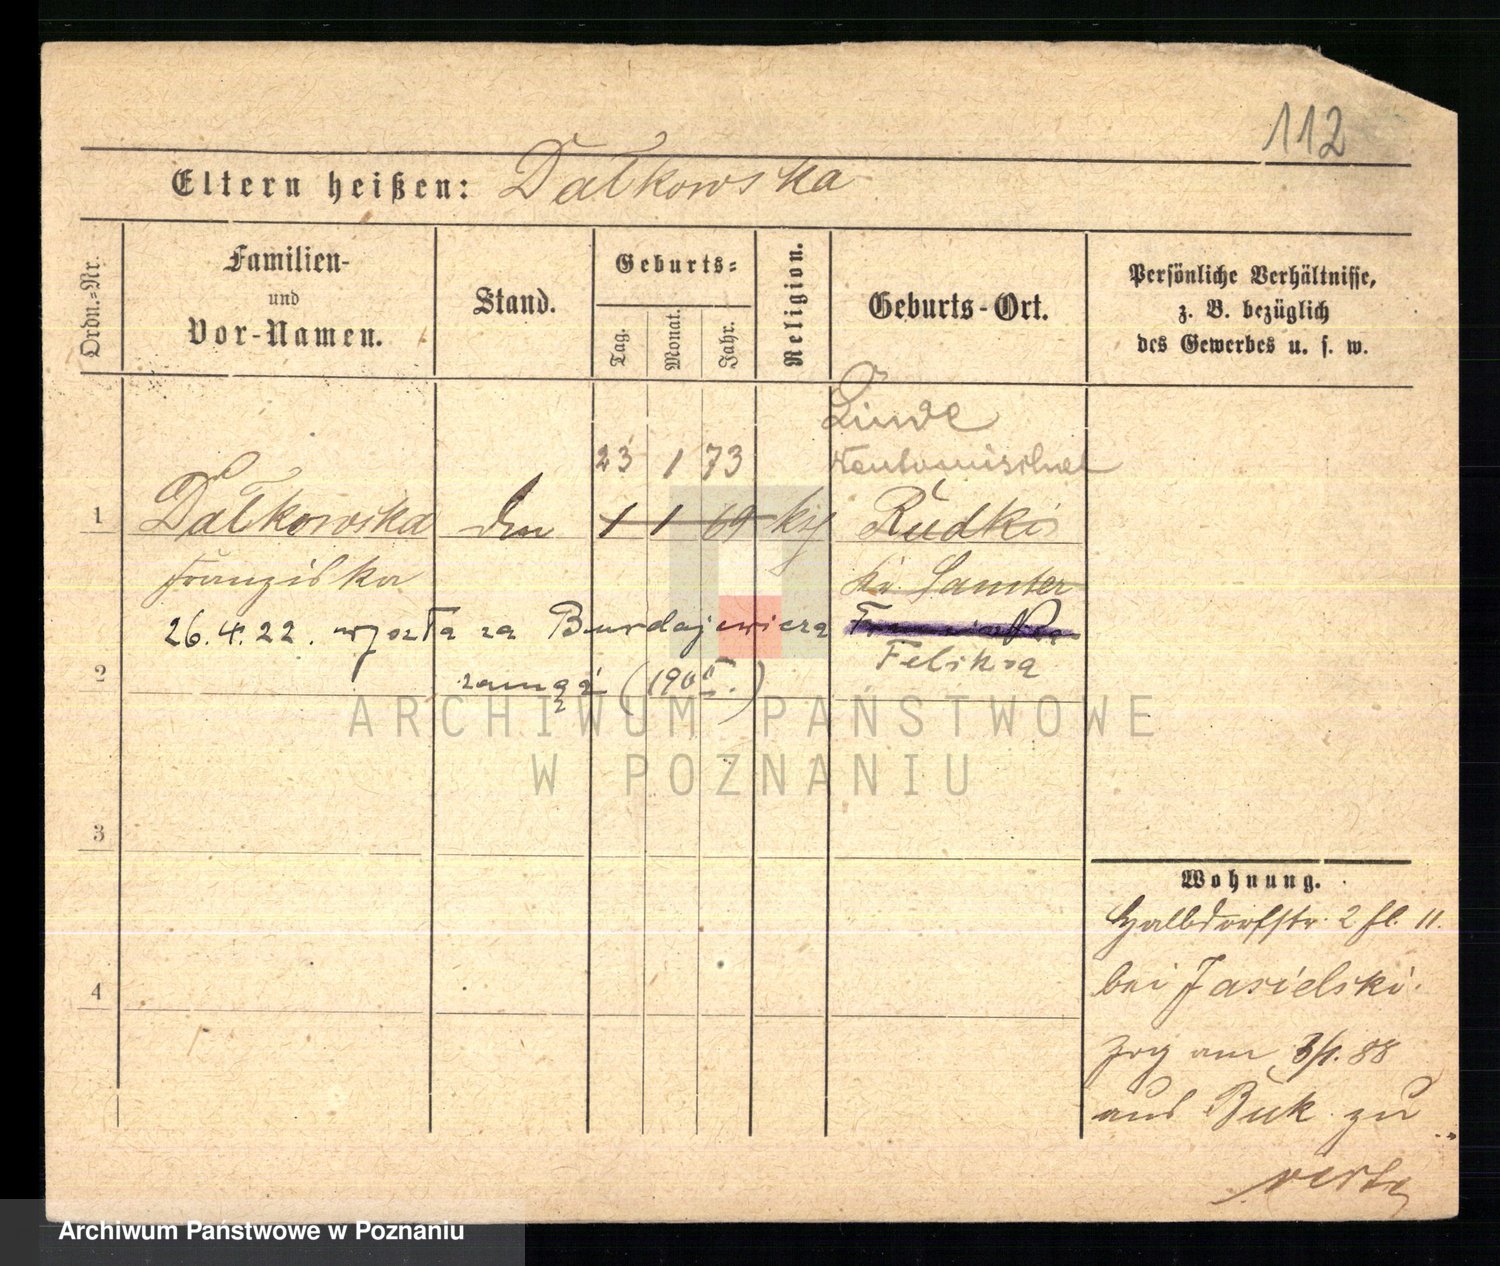 112
Eltern heißen: Dałkowska
Ordn.-Nr.
Familien-
und
Vor-Namen.
Stand.
Geburts-
Tag.
Monat.
Jahr.
Religion.
Geburts-Ort.
Persönliche Verhältnisse,
z. B. bezüglich
des Gewerbes u. s. w.
Linde
23 1 73 Neutomischel
1 Dałkowska 1 1 69 Rudki
Franziska Kr. Samter
26.4.22. wyszła za Burdajewicza
Feliksa
2 zamąż (1905.)
ARCHIWUM PAŃSTWOWE
W POZNANIU
3
Wohnung.
Halbdorfstr. 2 fl. 11.
4 bei Jasielski.
zog am 3/1. 88
aus Buk zu
verte
Archiwum Państwowe w Poznaniu